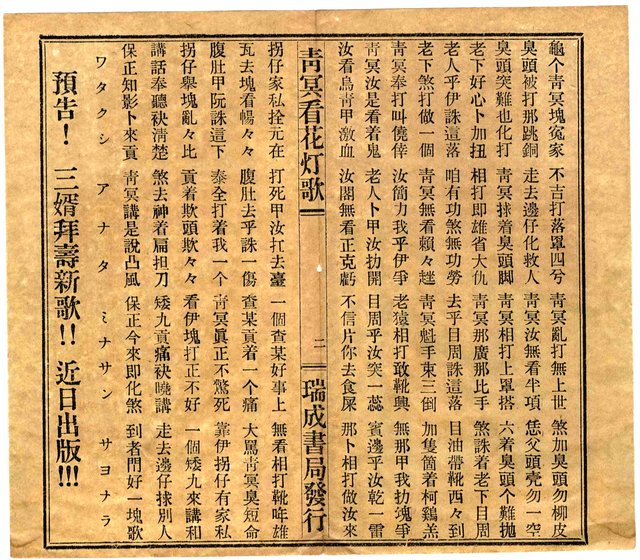 龜个靑冥塊冤家 不吉打落罩四兮 靑冥亂打無上世 煞加臭頭勿柳皮
臭頭被打那跳銅 走去邊仔化救人 靑冥汝無看半項 恁父頭壳勿一空
臭頭突難也化打 靑冥捄着臭頭脚 靑冥相打上罩搭 六着臭頭个難拋
老下好心卜加扭 相打即雄省大仇 靑冥那廣那比手 煞誅着老下目周
老人乎伊誅這落 咱有功煞無功勞 去乎目周誅這落 目油帶靴西々到
老下煞打做一個 靑冥無看賴々趖 靑冥魁手束三倒 加隻箇着柯鷄羔
靑冥奉打叫僥倖 汝簡力我乎伊爭 老猿相打敢靴興 無那甲我扐塊爭
靑冥汝是看着鬼 老人卜甲汝扐開 目周乎汝突一蕊 賓邊乎汝乾一雷
汝看鳥靑甲激血 汝閣無看正克虧 不信片你去食屎 那卜相打做汝來
靑冥看花灯歌 二 瑞成書局發行
拐仔家私拴元在 打死甲汝扛去臺 一個查某好事上 無看相打靴哞雄
瓦去塊看暢々々 腹肚去乎誅一傷 查某貢着一个痛 大罵靑冥臭短命
腹肚甲阮誅這下 泰全打着我一个 靑冥眞正不驚死 靠伊拐仔有家私
拐仔舉塊亂々比 貢着欺頭欺々々 看伊塊打正不好 一個矮九來講和
講話奉聽袂淸楚 煞去神着扁担刀 矮九貢痛袂曉講 走去邊仔捄別人
保正知影卜來貢 靑冥講是說凸風 保正今來即化煞 到者門好一塊歌
ワタクシ アナタ ミナサン サヨナラ
預告！ 三婿拜壽新歌!! 近日出版!!!